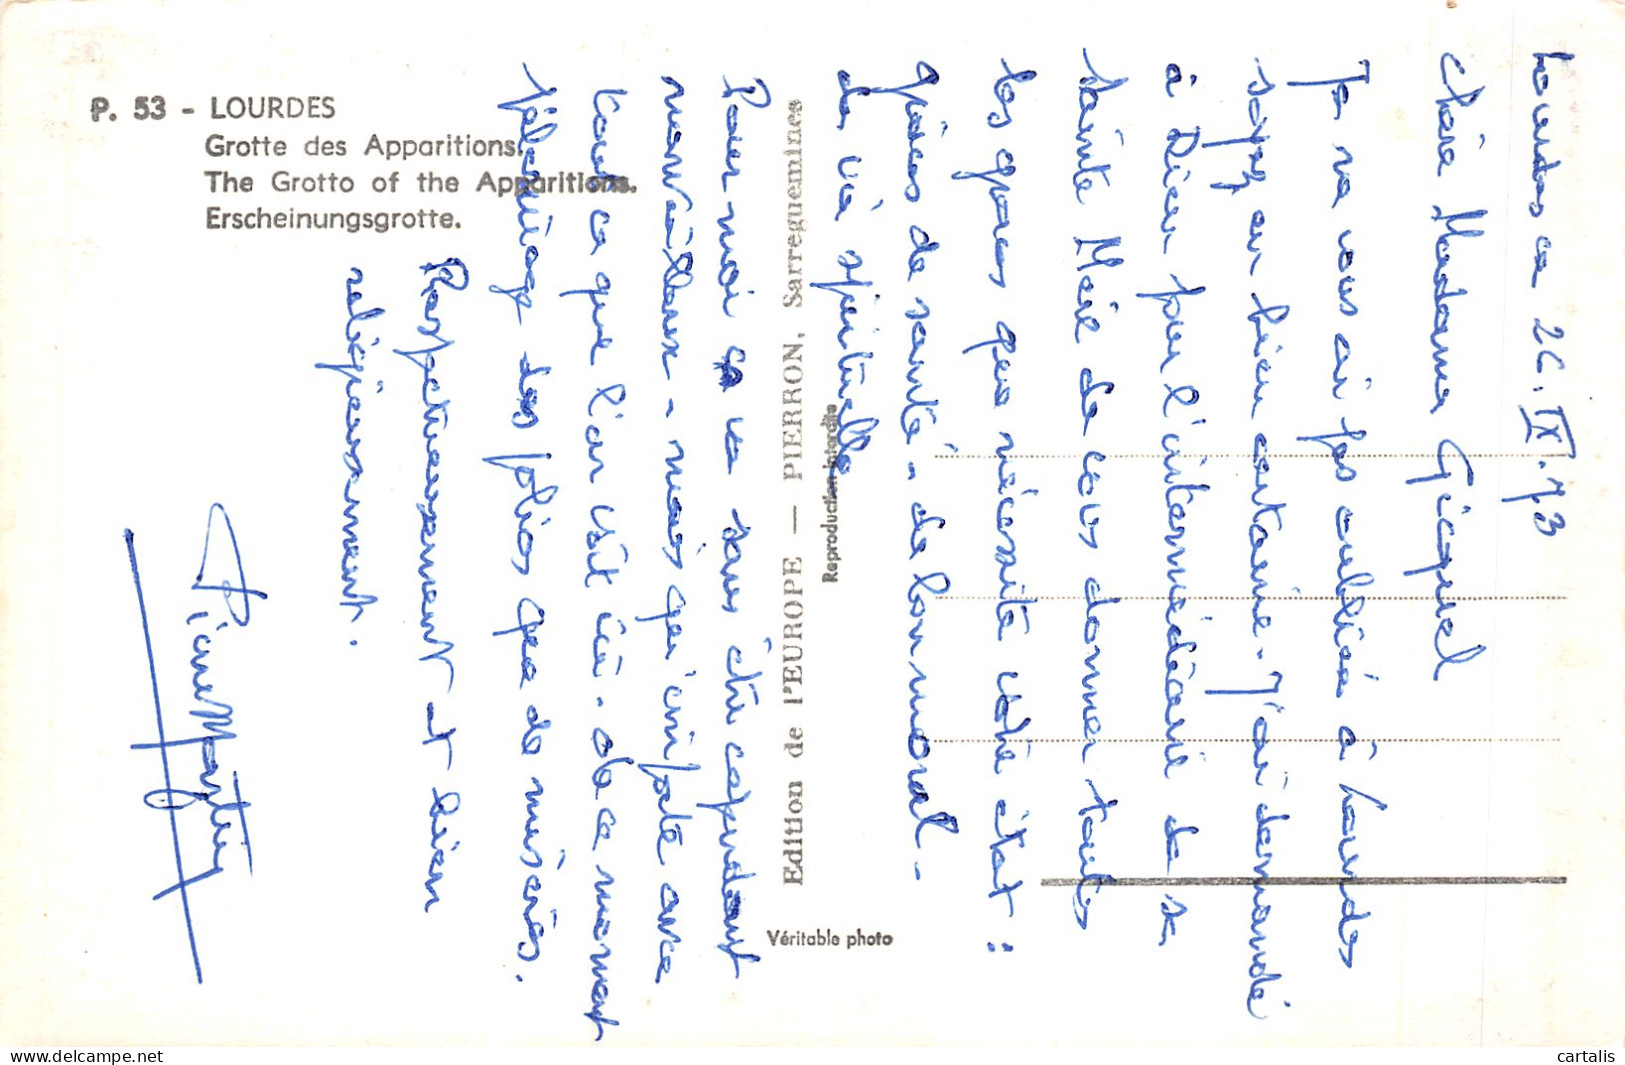 P. 53 - LOURDES
Grotte des Apparitions.
The Grotto of the Apparitions.
Erscheinungsgrotte.
Edition de l'EUROPE — PIERRON, Sarreguemines
Reproduction interdite
Véritable photo
Lourdes ce 26.IX.73
Chère Madame Gicquel
Je ne vous ai pas oubliée à Lourdes
soyez en bien certaine - J'ai demandé
à Dieu par l'intermédiaire de sa
sainte Mère de vous donner toutes
les grâces que nécessite votre état :
grâces de santé - de bon moral -
de vie spirituelle
Pour moi ça va sans être cependant
merveilleux - mais qu'importe avec
tout ce que l'on voit ici - en ce moment
pélerinage des polios que de misères.
Respectueusement et bien
religieusement.
Pierre Martin
delcampe.net
cartalis